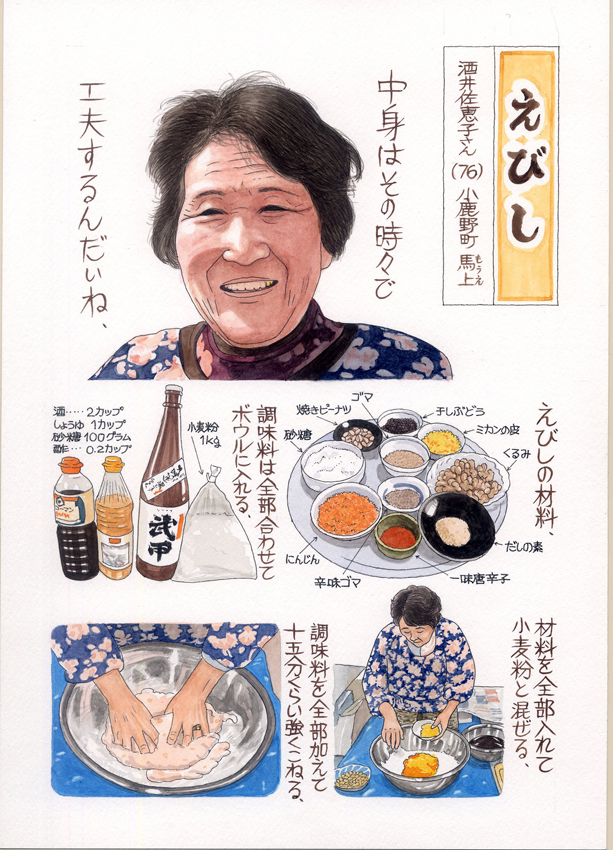 えびし
酒井佐恵子さん(76) 小鹿野町 馬上
もうえ
中身はその時々で
工夫するんだいね、
えびしの材料、
ゴマ
焼きピーナツ
砂糖
干しぶどう
ミカンの皮
くるみ
にんじん
辛味ゴマ
一味唐辛子
だしの素
調味料は全部合わせて
ボウルに入れる、
酒‥‥‥2カップ
しょうゆ 1カップ
砂糖 100グラム
酢‥‥ 0.2カップ
小麦粉
1kg
武甲
材料を全部入れて
小麦粉と混ぜる、
調味料を全部加えて
十五分くらい強くこねる、